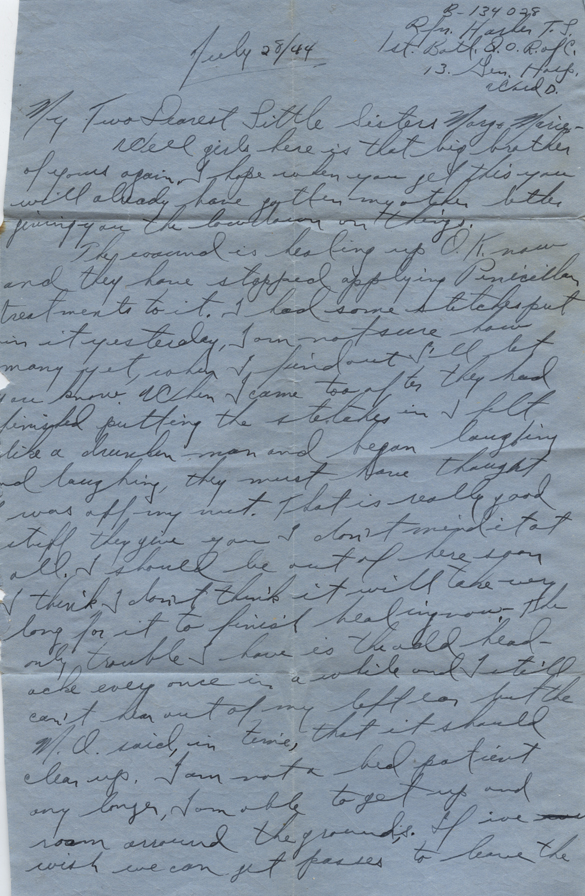 B-134028
Rfn. Hawkes T. S.
1st. Batt. Q.O.R. of C.
13. Gen. Hosp.
Ward D.
July 28/44
My Two Dearest Little Sisters Margo, Marie,
Well girls here is that big brother
of yours again, I hope when you get this you
will already have gotten my other letter
giving you the lowdown on things.
The wound is healing up O.K. now
and they have stopped applying Penicillan
treatments to it. I had some stitches put
in it yesterday, I am not sure how
many yet, when I find out I'll let
you know. When I came too after they had
finished putting the stitches in I felt
like a drunken man and began laughing
nd laughing, they must have thought
I was off my nut. That is really good
stuff they give you I don't mind it at
all. I should be out of here soon
I think, I don't think it will take very
long for it to finish healing now. The
only trouble I have is the odd head-
ache every once in a while and I still
can't hear out of my left ear but the
M.O. said, in time, that it should
clear up. I am not a bed patient
any longer, I am able to get up and
roam arround the grounds. If ive
wish we can get passes to leave the